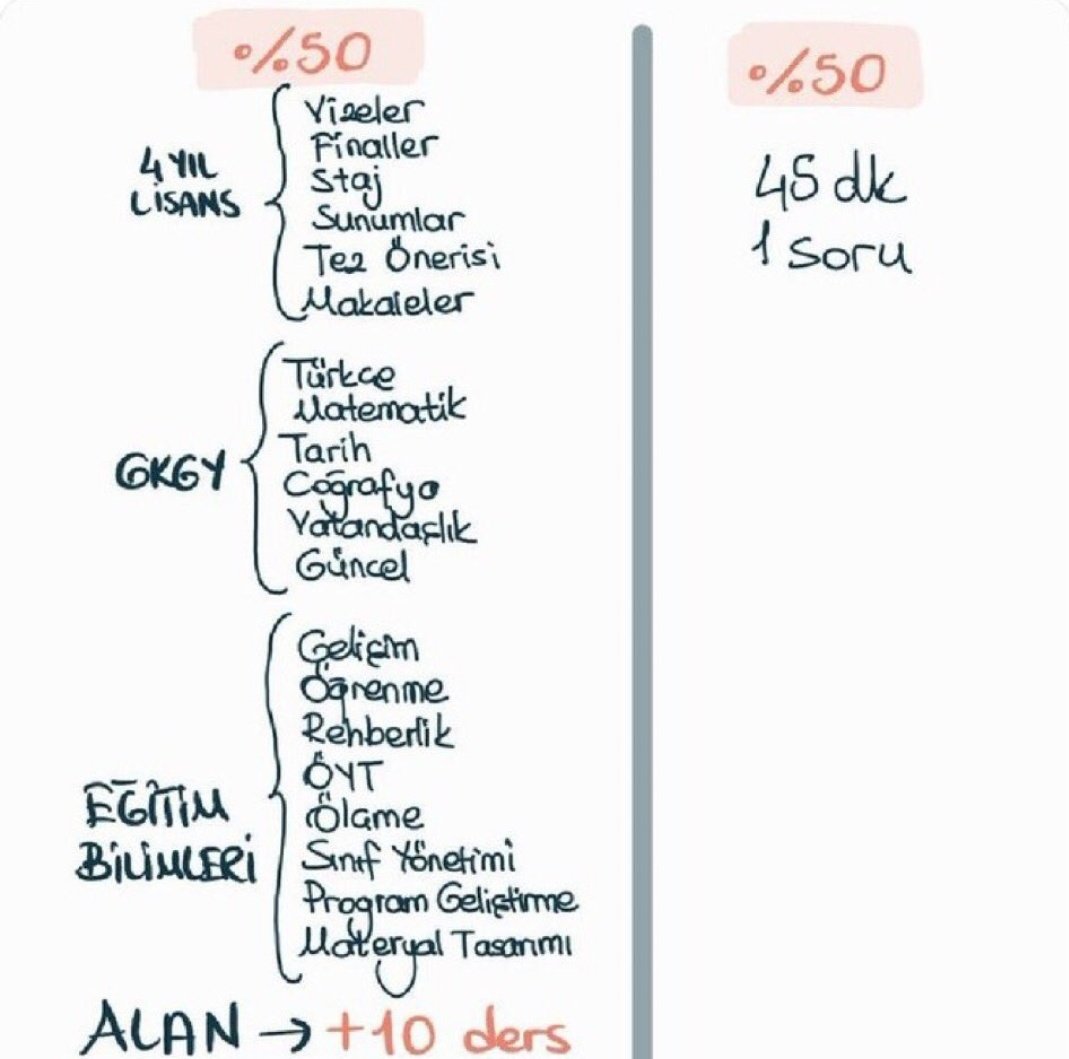 %50
4 YIL
LİSANS
Vizeler
Finaller
Staj
Sunumlar
Tez Önerisi
Makaleler
GKGY
Türkçe
Matematik
Tarih
Coğrafya
Vatandaşlık
Güncel
EĞİTİM
BİLİMLERİ
Gelişim
Öğrenme
Rehberlik
ÖYT
Ölçme
Sınıf Yönetimi
Program Geliştirme
Materyal Tasarımı
ALAN → +10 ders
%50
45 dk
1 soru